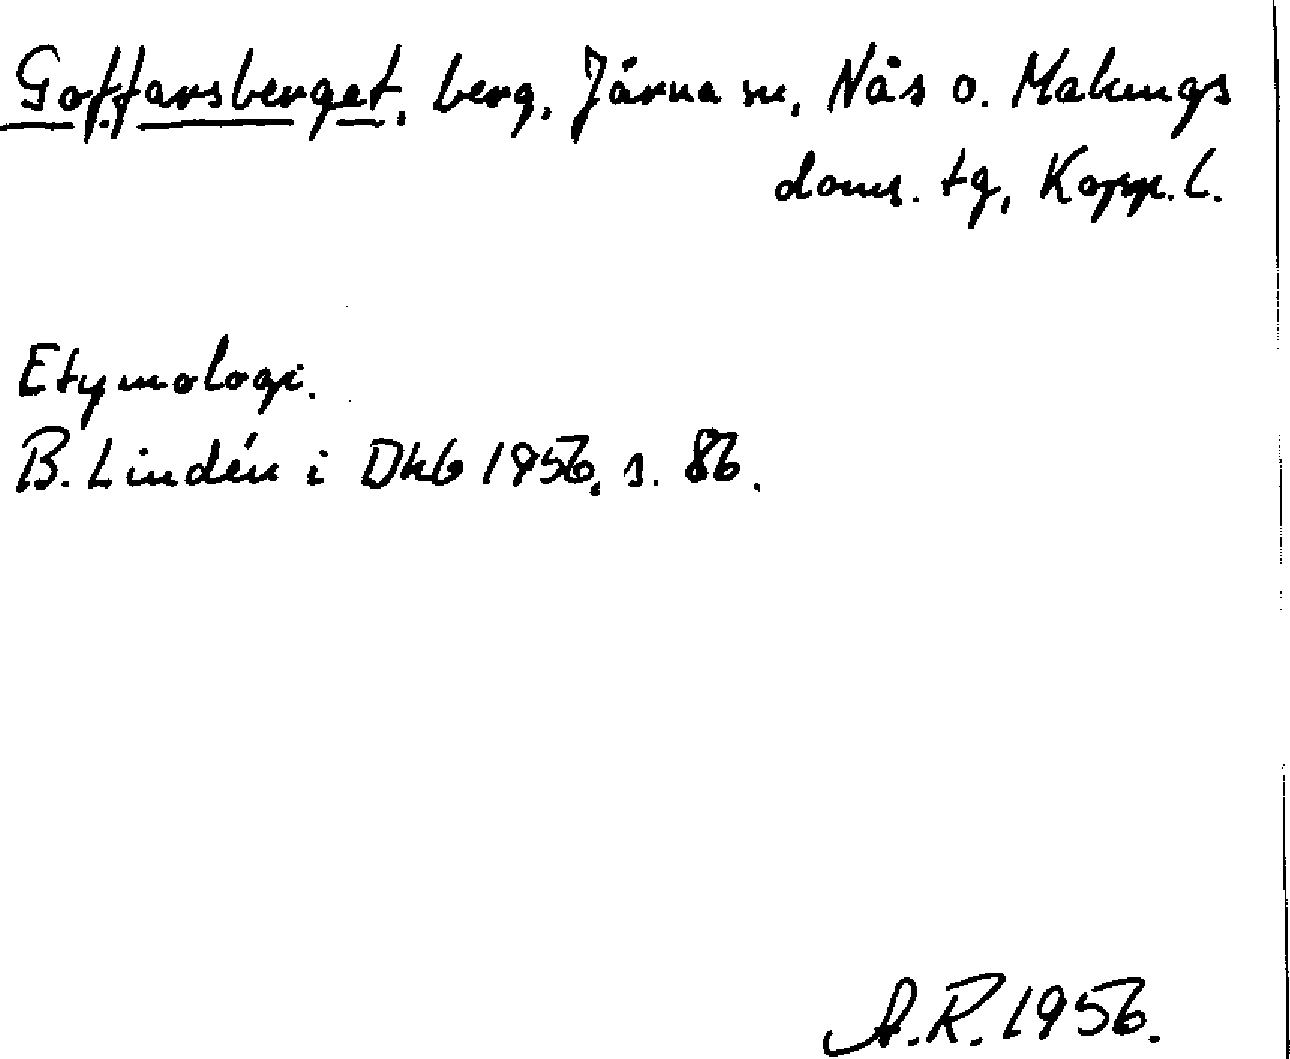 Goffarsberget, berg, Järna sn, Nås o. Malungs
doms. tg, Kopp. l.
Etymologi.
B. Lindén i Dhb 1956, s. 86.
A.R. 1956.